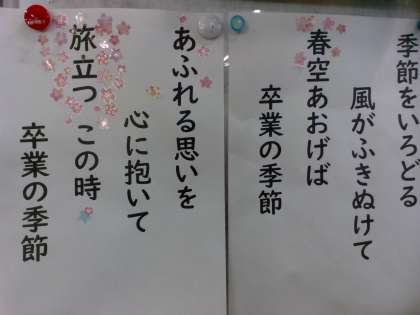 季節をいろどる
風がふきぬけて
春空あおげば
卒業の季節
あふれる思いを
心に抱いて
旅立つ この時
卒業の季節